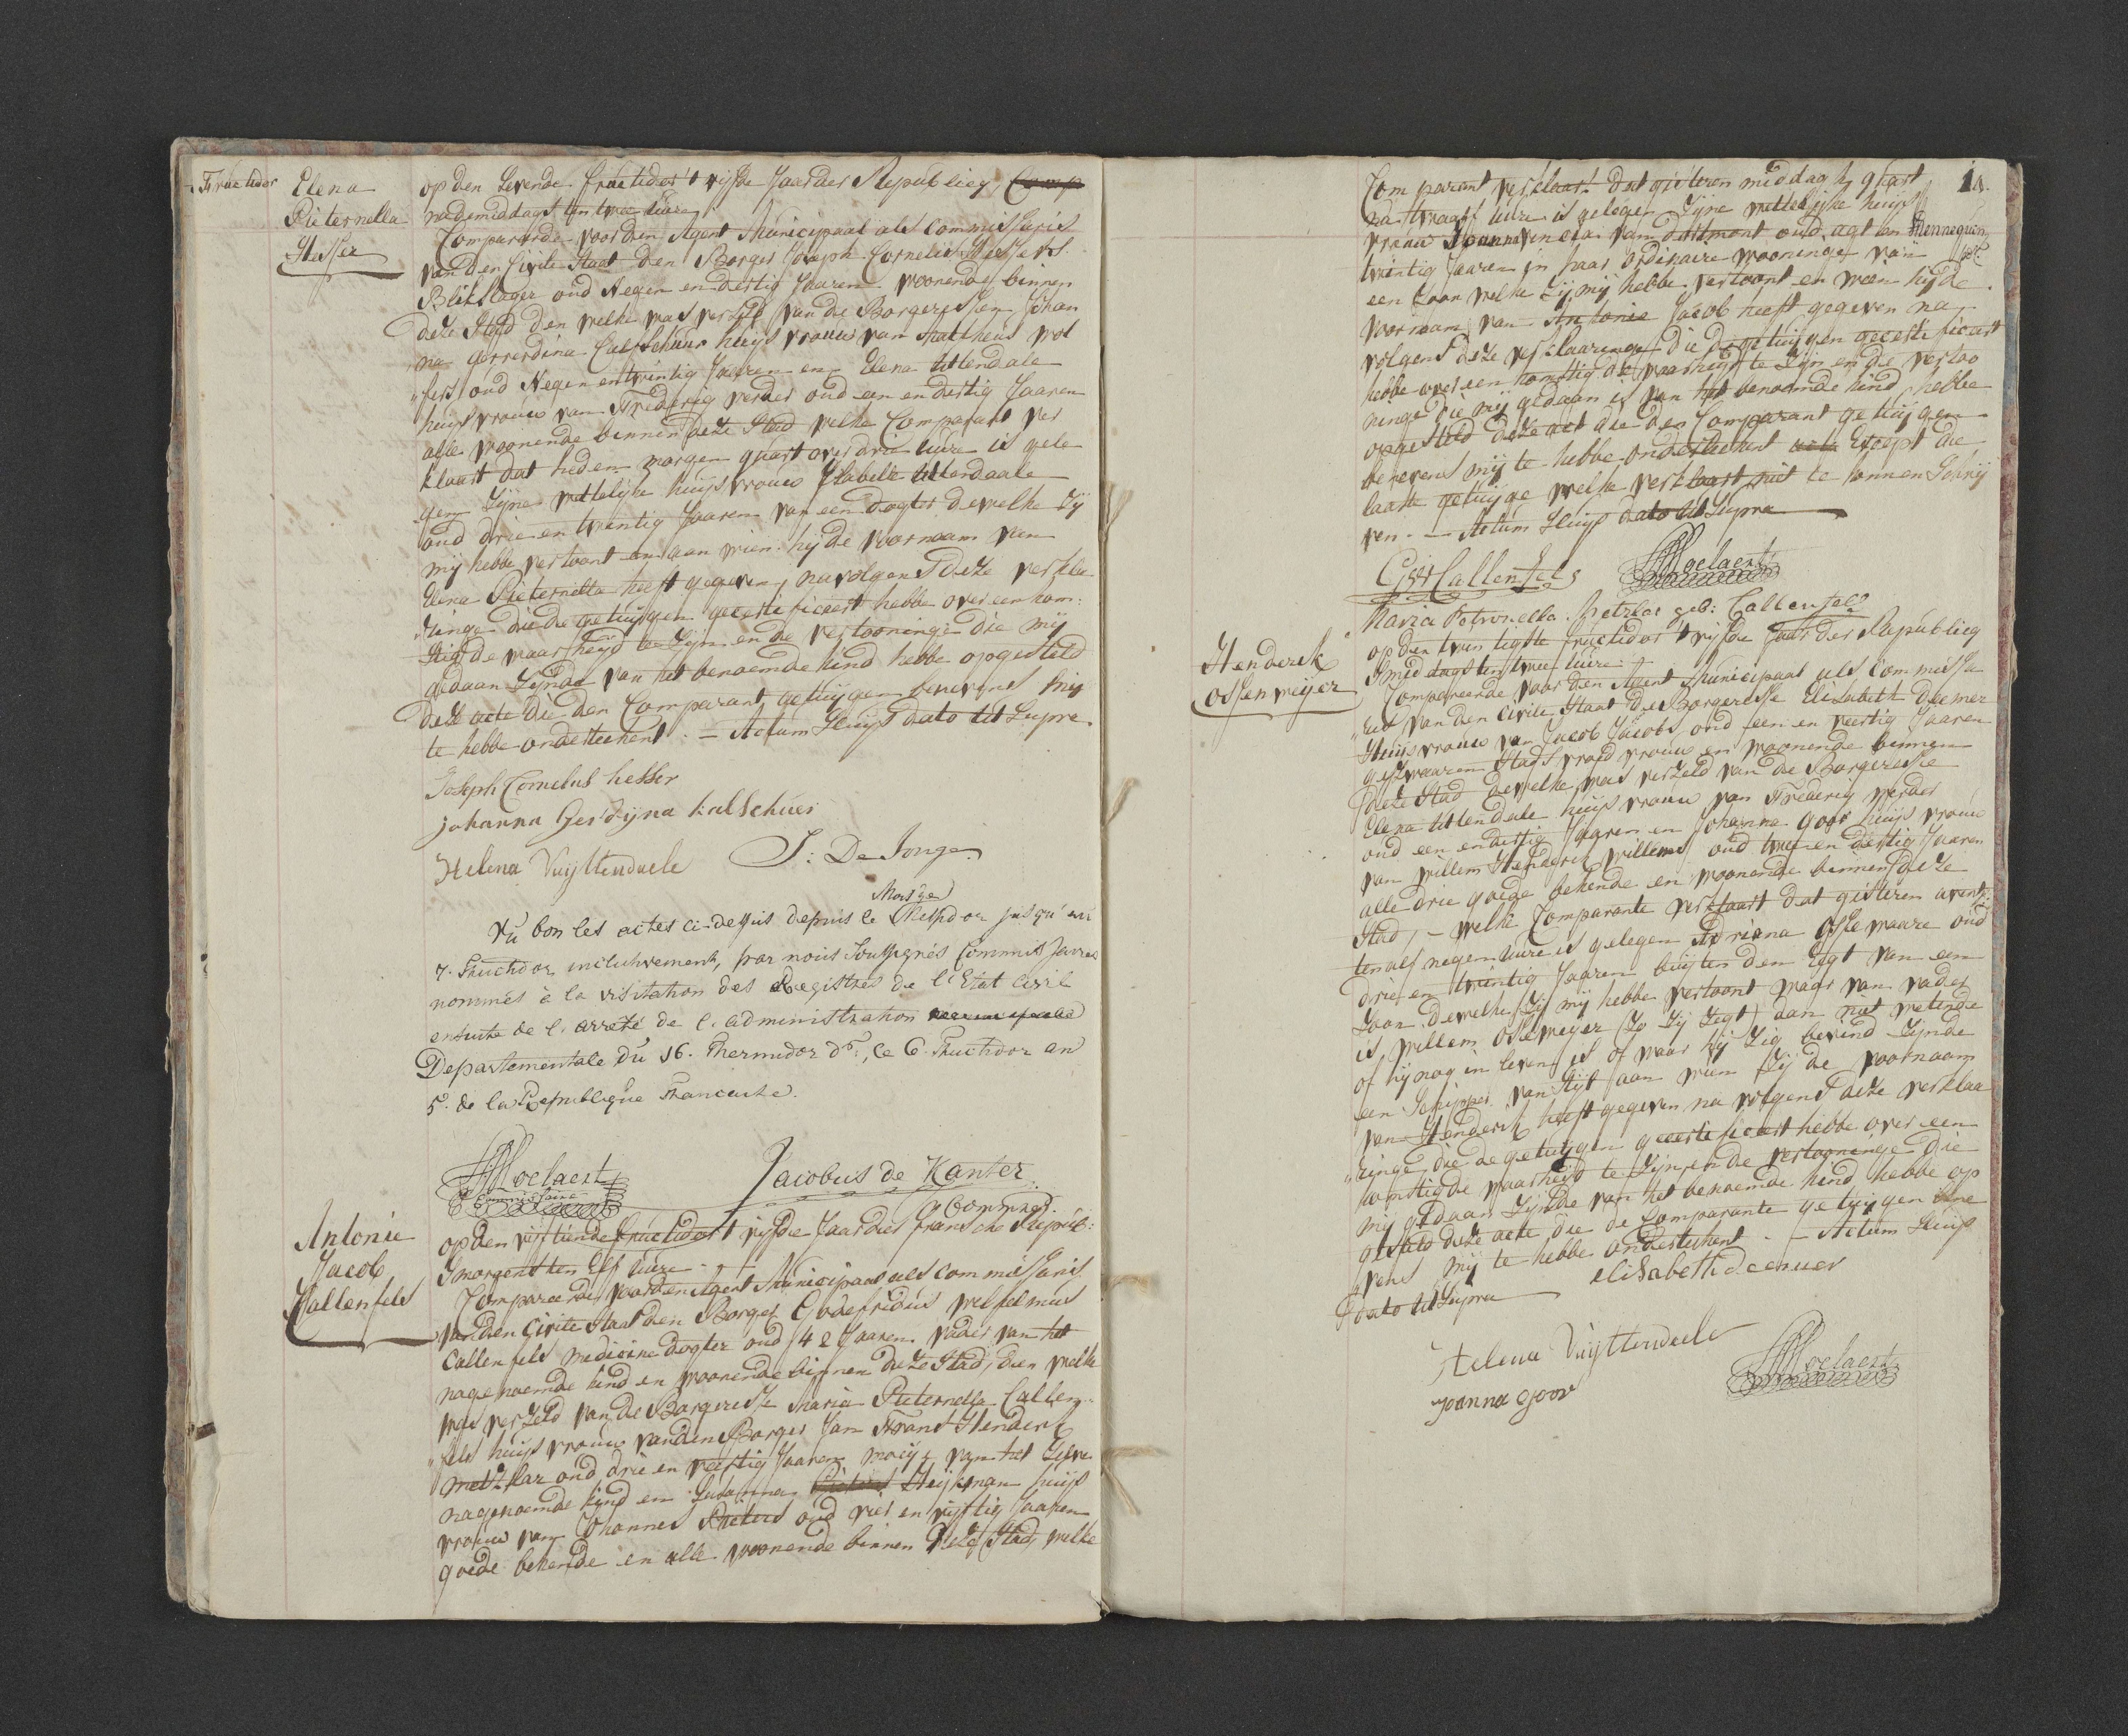 Fructidor
Elena
Pieternella
Hesser
op den Sevende fructidor 't vijfde Jaar der Republieq, Comp
nademiddags ten twee uure
Compareerde voor den Agent Municipaal als Commissaris
van den Civile Staat den Borger Joseph Cornelis Hessers
Blikslager oud Negen en dertig Jaaren woonende binnen
deze Stad den welke was verzeld van de Borgeressen Johan
na Gerrerdina Calfschuur huijs vrouw van Mattheus wol
„fers oud Negen en twintig Jaaren en Elena Uttendale
huijs vrouw van Frederiq verder oud een en dertig Jaaren
alle woonende binnen deze Stad welke Comparant ver
klaart dat heden morgen quart over drie uure is gele
gen Zijne wettelijke huijsvrouw Isabella Uttendaale
oud drie en twintig Jaaren van een dogter dewelke Zij
mij hebbe vertoont en aan wien hij de voornaam van
Elena Pieternella heeft gegeven, navolgens deze verkla
„ringe die de getuijgen gecertificeert hebbe over een kom:
stig de waarheijd te Zijn en de vertooninge die mij
gedaan Zijnde van het benoemde kind hebbe opgesteld
deze acte die den Comparant getuijgen benevens mij
te hebbe ondertechent. - Actum Sluijs dato Ut Supra.
Joseph Cornelus hesser
johanna Gerdijna kalschuer
Helena Vuijttendaele J: De Jonge
Mois de
Vu bon les actes ci-dessus depuis le Thesdor jusqu'au
7. Fructidor inclusivement, par nous Soussignés Commissaires
nommés à la visitation des Registres de l'Etat Civil
ensuite de l'arreté de l'administration
Departementale du 16. Thermidor dr, le 6. Fructidor an
5e. de la Republique Francaise.
HMoelaert
Commissaire
Jacobus de Kanter
Commiss.
Antonie
Jacob
Kallenfels
op den vijftiende fructidor 't vijfde Jaar der fransche Repub:
Smorgens ten Elf uure
Compareerde voor den Agent Municipaal als Commissaris
van den Civile Staat den Borger Godefridus Welselmus
Callenfels Medicine Dogter oud 42 Jaaren vader van het
nagenoemde kind en woonende binnen deze Stad, den welke
was verzeld van de Borgeresse Maria Pieternella Callen-
„fels huijs vrouw van den Borger Jan Frans Henderk
Metzlar oud drie en veertig Jaaren moeije van het Zelve
nagenoemde kind en Susanna Heijkman huijs
vrouw van Johannes Pieters oud vier en vijftig Jaaren
goede bekende en alle woonende binnen deze Stad, welke
Comparant verklaart dat gisteren middag quart
na twaalf uure is gelegen Zijne wettelijke huijs
vrouw Joanna van Dortmont oud agt en Hennequin
twintig Jaaren in haar ordinaire wooninge van
een Zoon welke Zij mij hebbe vertoont en wien hij de
voornaam van Antonie Jacob heeft gegeven na
volgens deze verklaaringe die de getuijgen gecertificeert
hebbe over een komstig de waarheijd te Zijn en de vertoo
ninge die mij gedaan is van het benoemde kind, hebbe
opgesteld deze act die den Comparant getuijgen
benevens mij te hebbe ondertechent Except die
laaste getuijge welke verklaart niet te konnen Schrij
ven. - Actum Sluijs dato Ut Supra
GWCallenfels HMoelaert
Maria Petronella Metzlar geb: Callenfels
Henderik
Ossenweijer
op den twintigste fructidor 't vijfde Jaar der Republieq
Smiddags ten twee uure
Compareerde voor den Agent Municipaal als Commissa
„ris van den Civile Staat de Borgeresse Elisabeth Deemer
Huijs vrouw van Jacob Jacobs oud een en veertig Jaaren
geswooren Stads vroed vrouw en woonende binnen
deze Stad dewelke was verzeld van de Borgeresse
Elena Uttendale huijs vrouw van Frederiq verder
oud een en dertig Jaaren en Johanna Goor huijs vrouw
van willem Henderik willems oud twee en dertig Jaaren
alle drie goede bekende en woonende binnen deze
Stad, - welke Comparante verklaart dat gisteren avent
ten alf negen uure is gelegen Adriana Ossewaare oud
drie en twintig Jaaren buijten den Egt van een
Zoon dewelke Zij mij hebbe vertoont waar van vader
is willem Osseweijer (Zo Zij Zegt) dan niet wetende
of hij nog in leven is of waar hij Zig bevind Zijnde
een Schipper van Stijl aan wien Zij de voornaam
van Henderik heeft gegeven na volgens deze verklaa
„ringe die de getuijgen gecertificeert hebbe over een
komstig de waarheijd te Zijn en de vertooninge die
mij gedaan Zijnde van het benoemde kind hebbe op
gesteld deze acte die de Comparante getuijgen bene
„vens mij te hebbe ondertechent - Actum Sluijs
dato Ut Supra
elisabeth deemer
Helena Vuijttendaele
HMoelaert
joanna goor